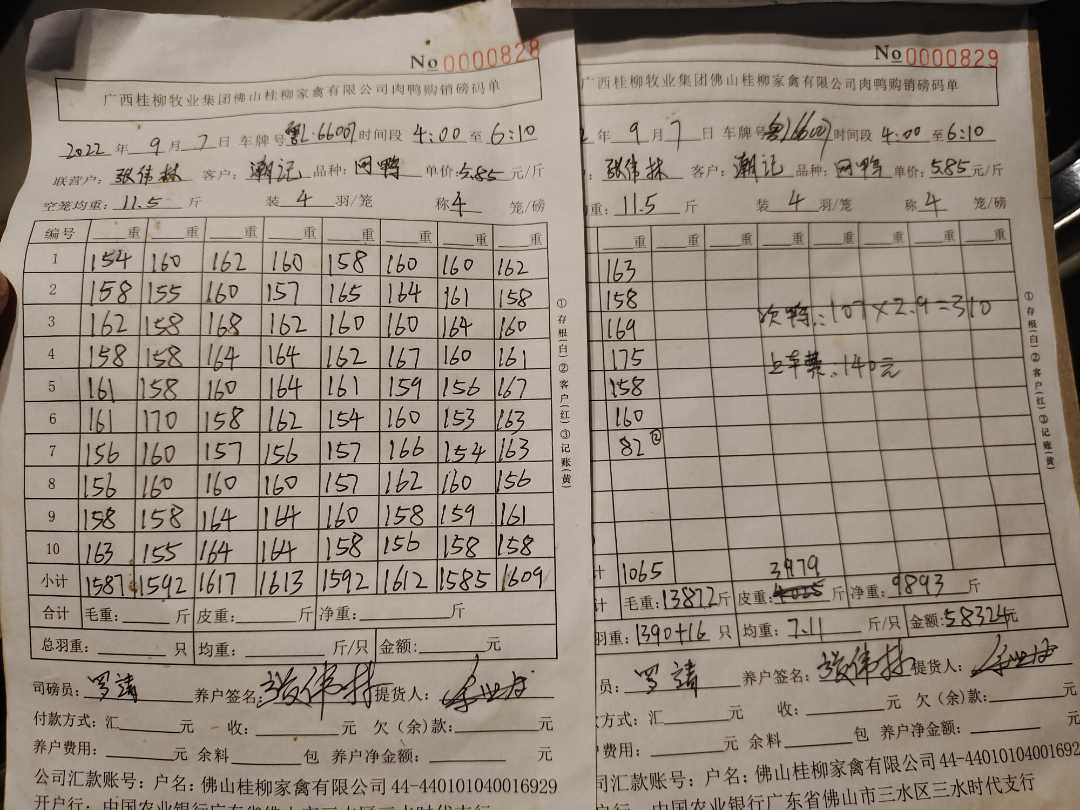 No 0000828
广西桂柳牧业集团佛山桂柳家禽有限公司肉鸭购销磅码单
2022 年 9 月 7 日 车牌号 粤L·66007 时间段 4:00 至 6:10
联营户: 张伟林 客户: 潮记 品种: 网鸭 单价: 5.85 元/斤
空笼均重: 11.5 斤 装 4 羽/笼 称 4 笼/磅
编号 重 重 重 重 重 重 重 重
1 154 160 162 160 158 160 160 162
2 158 155 160 157 165 164 161 158
3 162 158 168 162 160 160 164 160
4 158 158 164 164 162 167 160 161
5 161 158 160 164 161 159 156 167
6 161 170 158 162 154 160 153 163
7 156 160 157 156 157 166 154 163
8 156 160 160 160 157 162 160 156
9 158 158 164 164 160 158 159 161
10 163 155 164 164 158 156 158 158
小计 1587 1592 1617 1613 1592 1612 1585 1609
合计 毛重: 斤 皮重: 斤 净重: 斤
总羽重: 只 均重: 斤/只 金额: 元
司磅员: 罗靖 养户签名: 张伟林 提货人:
付款方式: 汇 元 收: 元 欠(余)款: 元
养户费用: 元 余料 包 养户净金额: 元
公司汇款账号: 户名: 佛山桂柳家禽有限公司 44-440101040016929
开户行: 中国农业银行广东省佛山市三水区三水时代支行
①存根(白)②客户(红)③记账(黄)
No 0000829
广西桂柳牧业集团佛山桂柳家禽有限公司肉鸭购销磅码单
年 9 月 7 日 车牌号 粤L66007 时间段 4:00 至 6:10
张伟林 客户: 潮记 品种: 网鸭 单价: 5.85 元/斤
重: 11.5 斤 装 4 羽/笼 称 4 笼/磅
重 重 重 重 重 重 重 重
163
158
次鸭: 107×2.9=310
169
175
上车费: 140元
158
160
82 ②
计 1065
3979
计 毛重: 13872 斤 皮重: 4025 斤 净重: 9893 斤
羽重: 1390+16 只 均重: 7.11 斤/只 金额: 58324 元
员: 罗靖 养户签名: 张伟林 提货人:
方式: 汇 元 收: 元 欠(余)款: 元
养户费用: 元 余料 包 养户净金额: 元
司汇款账号: 户名: 佛山桂柳家禽有限公司 44-440101040016929
户行: 中国农业银行广东省佛山市三水区三水时代支行
①存根(白)②客户(红)③记账(黄)